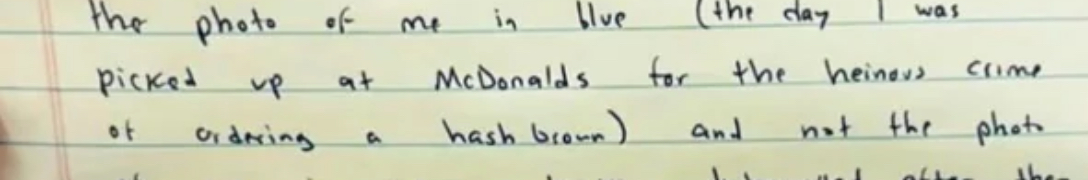 the photo of me in blue (the day I was
picked up at McDonalds for the heinous crime
of ordering a hash brown) and not the photo